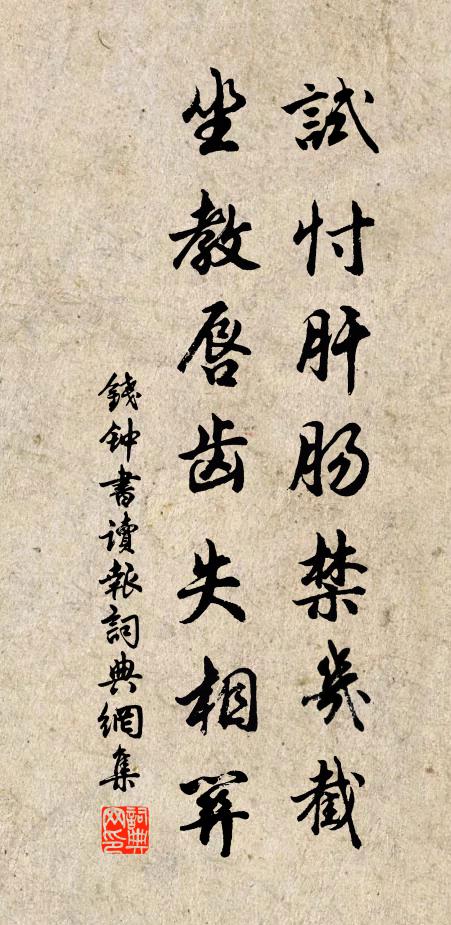 試忖肝肠禁幾截
坐教唇齿失相関
錢鈡書讀報詞典網集
詞典网印